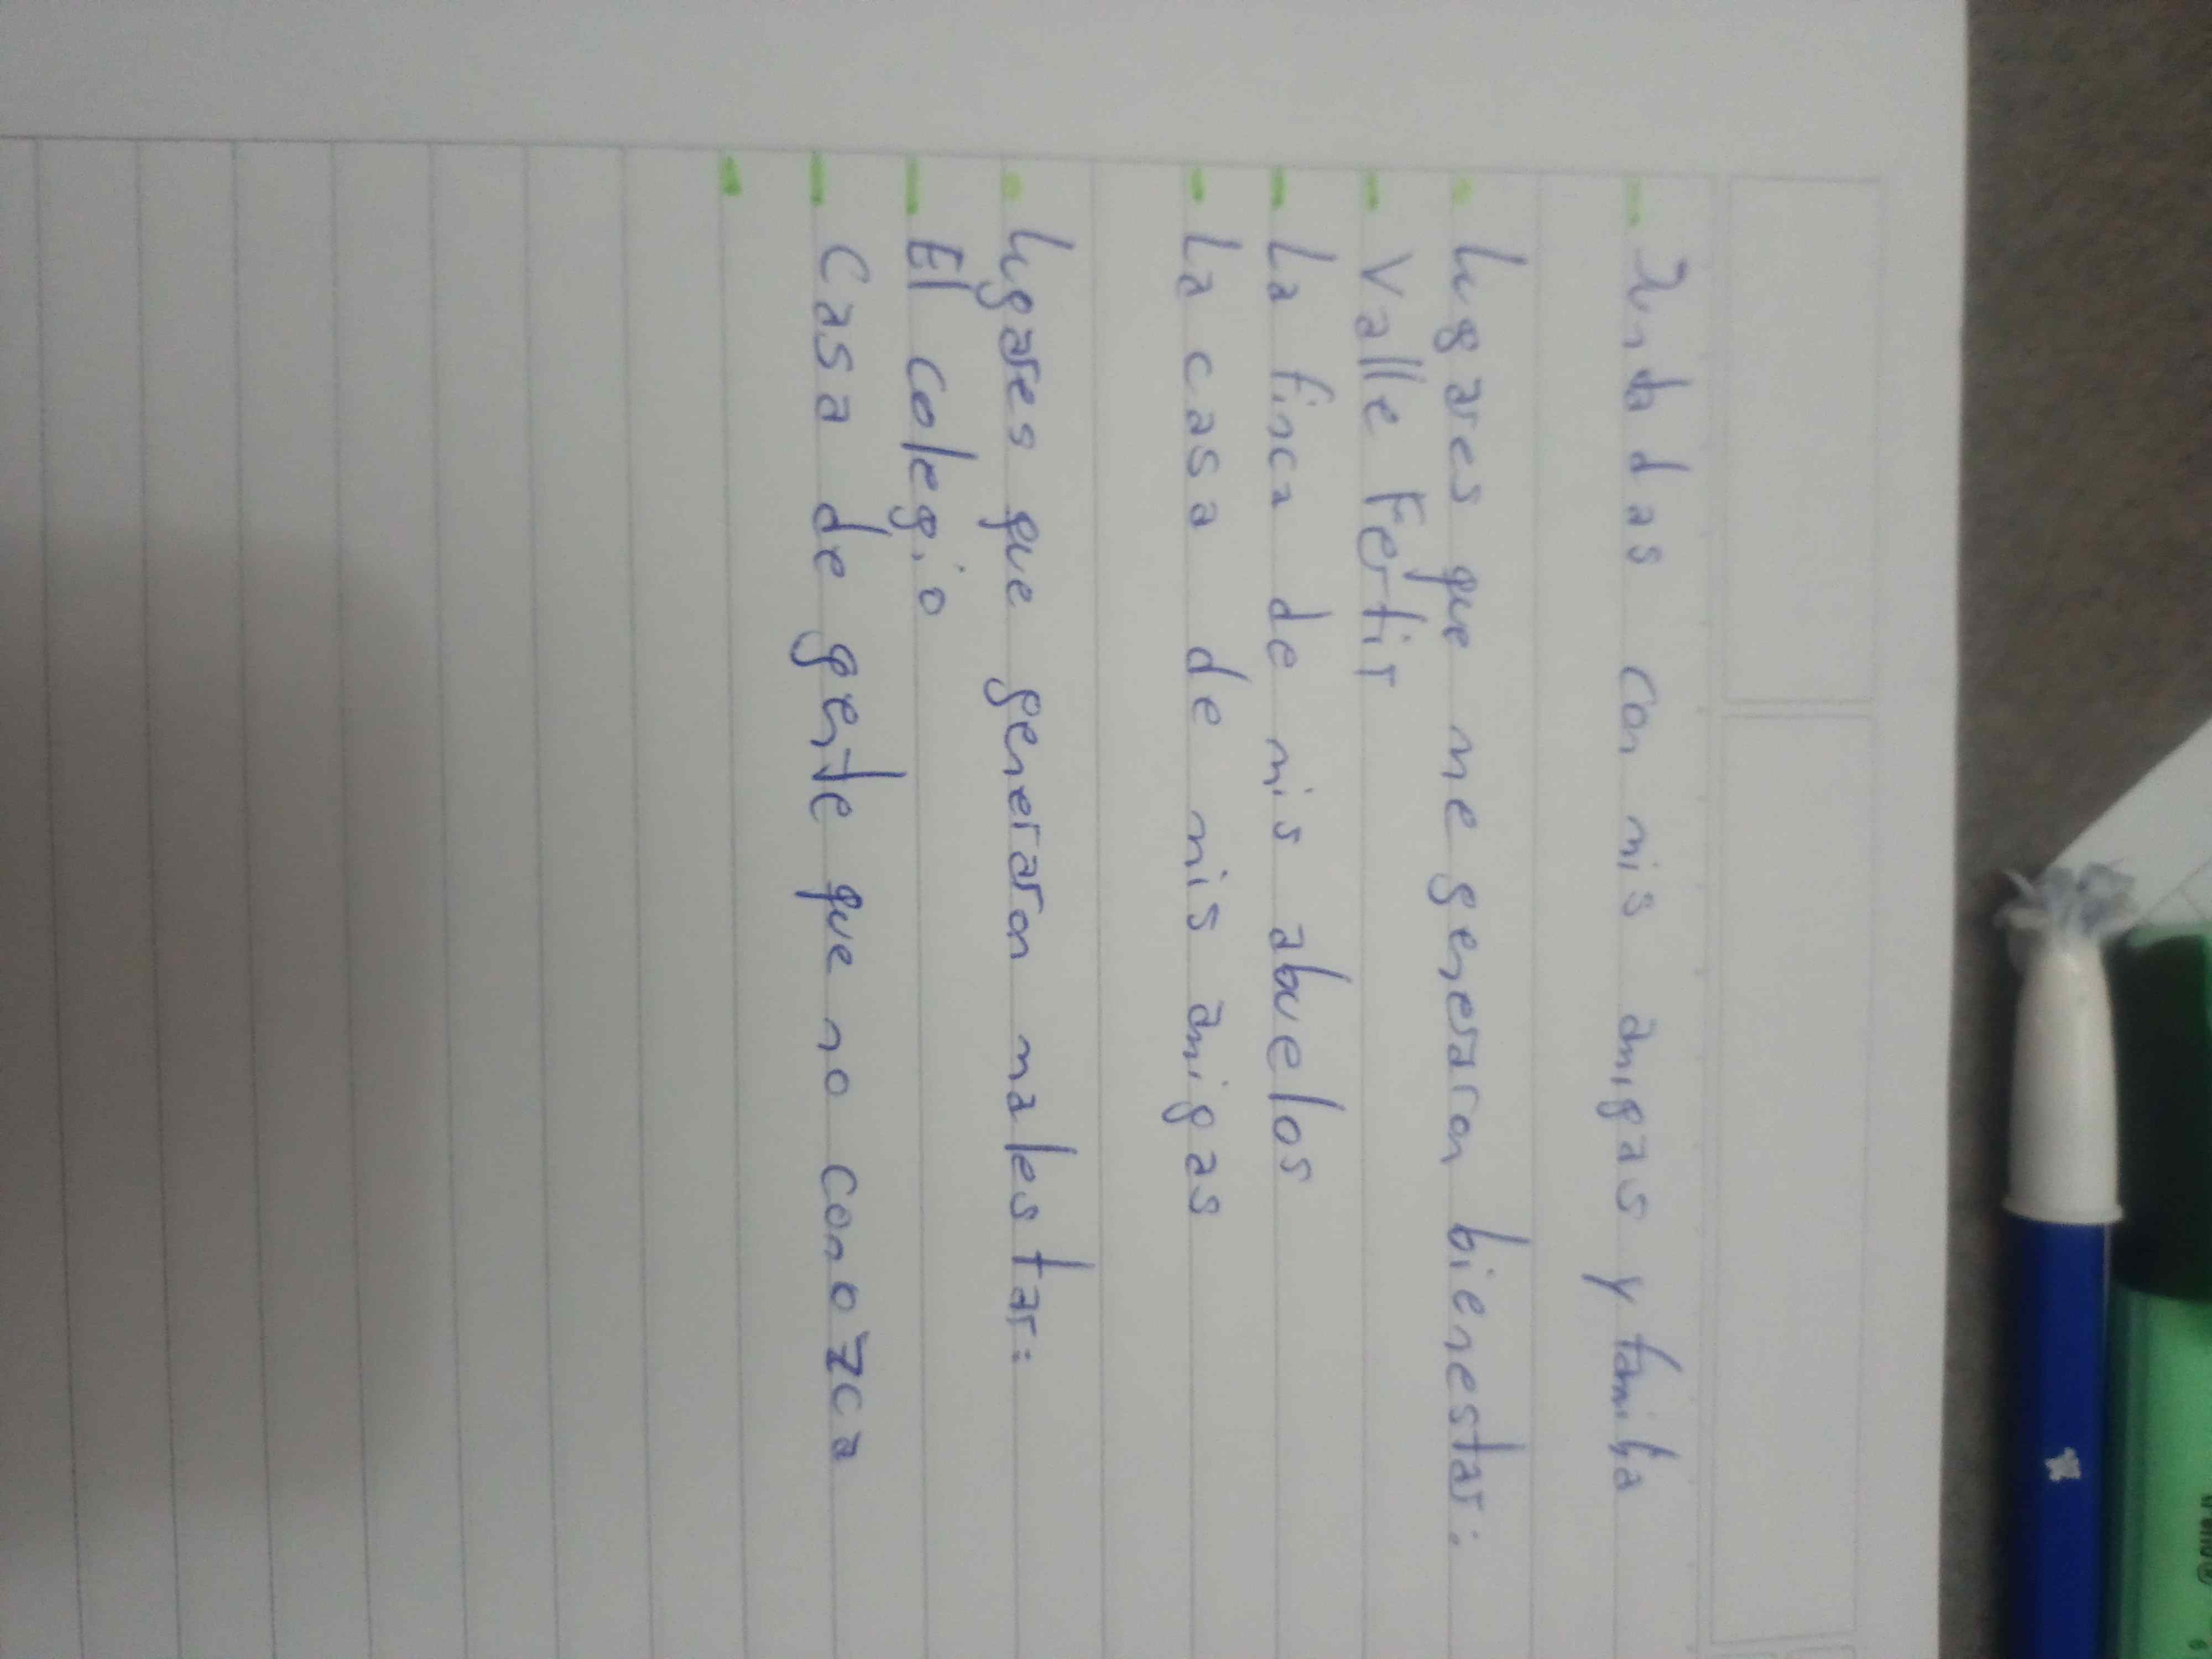 - Juntadas con mis amigas y familia
• Lugares que me generaron bienestar:
- Valle Fertir
- La finca de mis abuelos
- La casa de mis amigas
• Lugares que generaron malestar:
- El colegio
- Casa de gente que no conozca
-